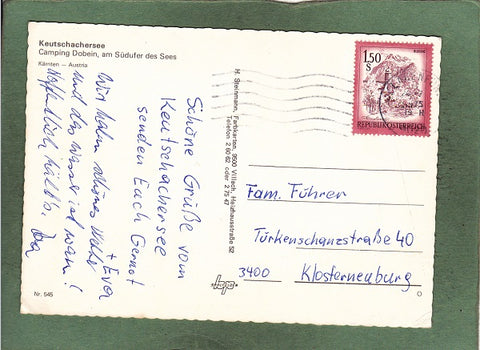 Keutschachersee
Camping Dobein, am Südufer des Sees
Kärnten — Austria
Schöne Grüße vom
Keutschachersee
senden Euch Gernot
+ Eva.
Wir haben schönes Wetter
und das Wasser ist warm!
Hoffentlich hält's.
Nr. 545
H. Steinmann, Farbkarten, 9500 Villach, Heidenfeldstraße 52
Telefon 2 60 62 oder 2 75 47
1.50
S
REPUBLIK ÖSTERREICH
Fam. Führer
Türkenschanzstraße 40
3400 Klosterneuburg